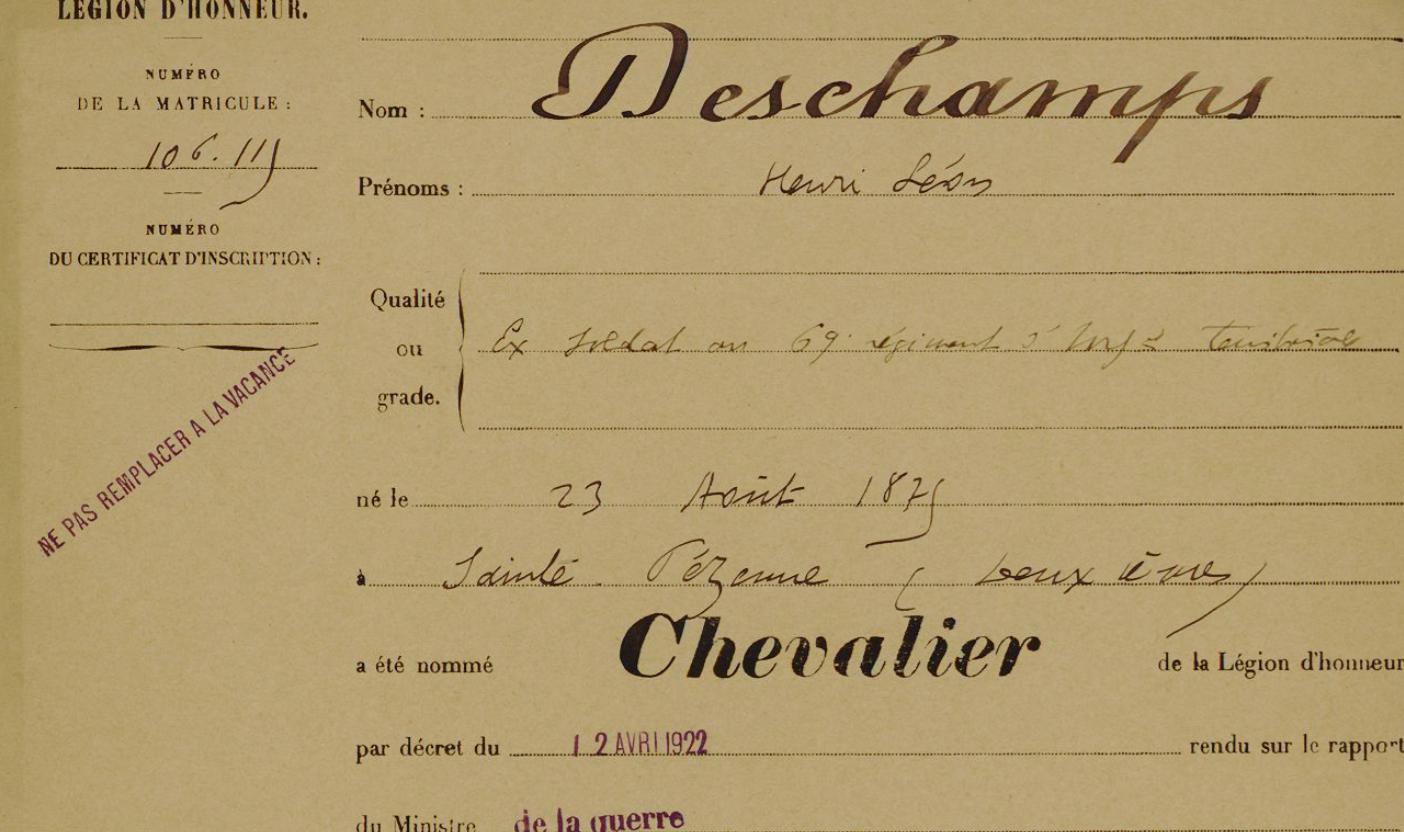 LÉGION D'HONNEUR.
NUMÉRO
DE LA MATRICULE :
106.115
NUMÉRO
DU CERTIFICAT D'INSCRIPTION :
NE PAS REMPLACER A LA VACANCE
Nom : Deschamps
Prénoms : Henri Léon
Qualité
ou
grade.
Ex soldat au 69e régiment d'Infie territorial
né le 23 Août 1875
à Sainte Pézenne (Deux Sèvres)
a été nommé Chevalier de la Légion d'honneur
par décret du 12 AVRI 1922 rendu sur le rapport
du Ministre de la guerre